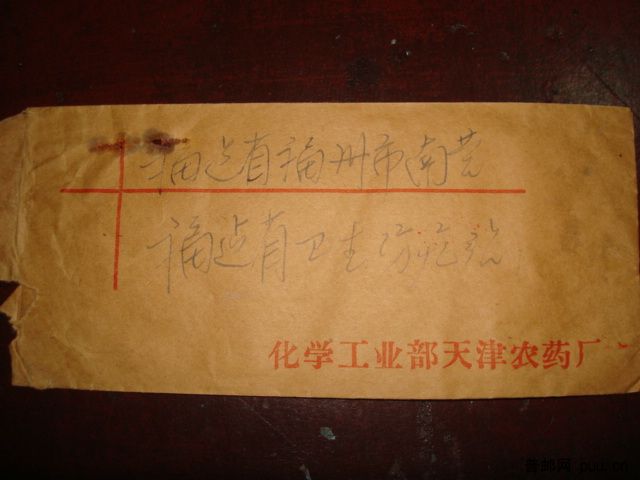 福建省福州市南营
福建省卫生防疫站
化学工业部天津农药厂
普邮网 puu.cn